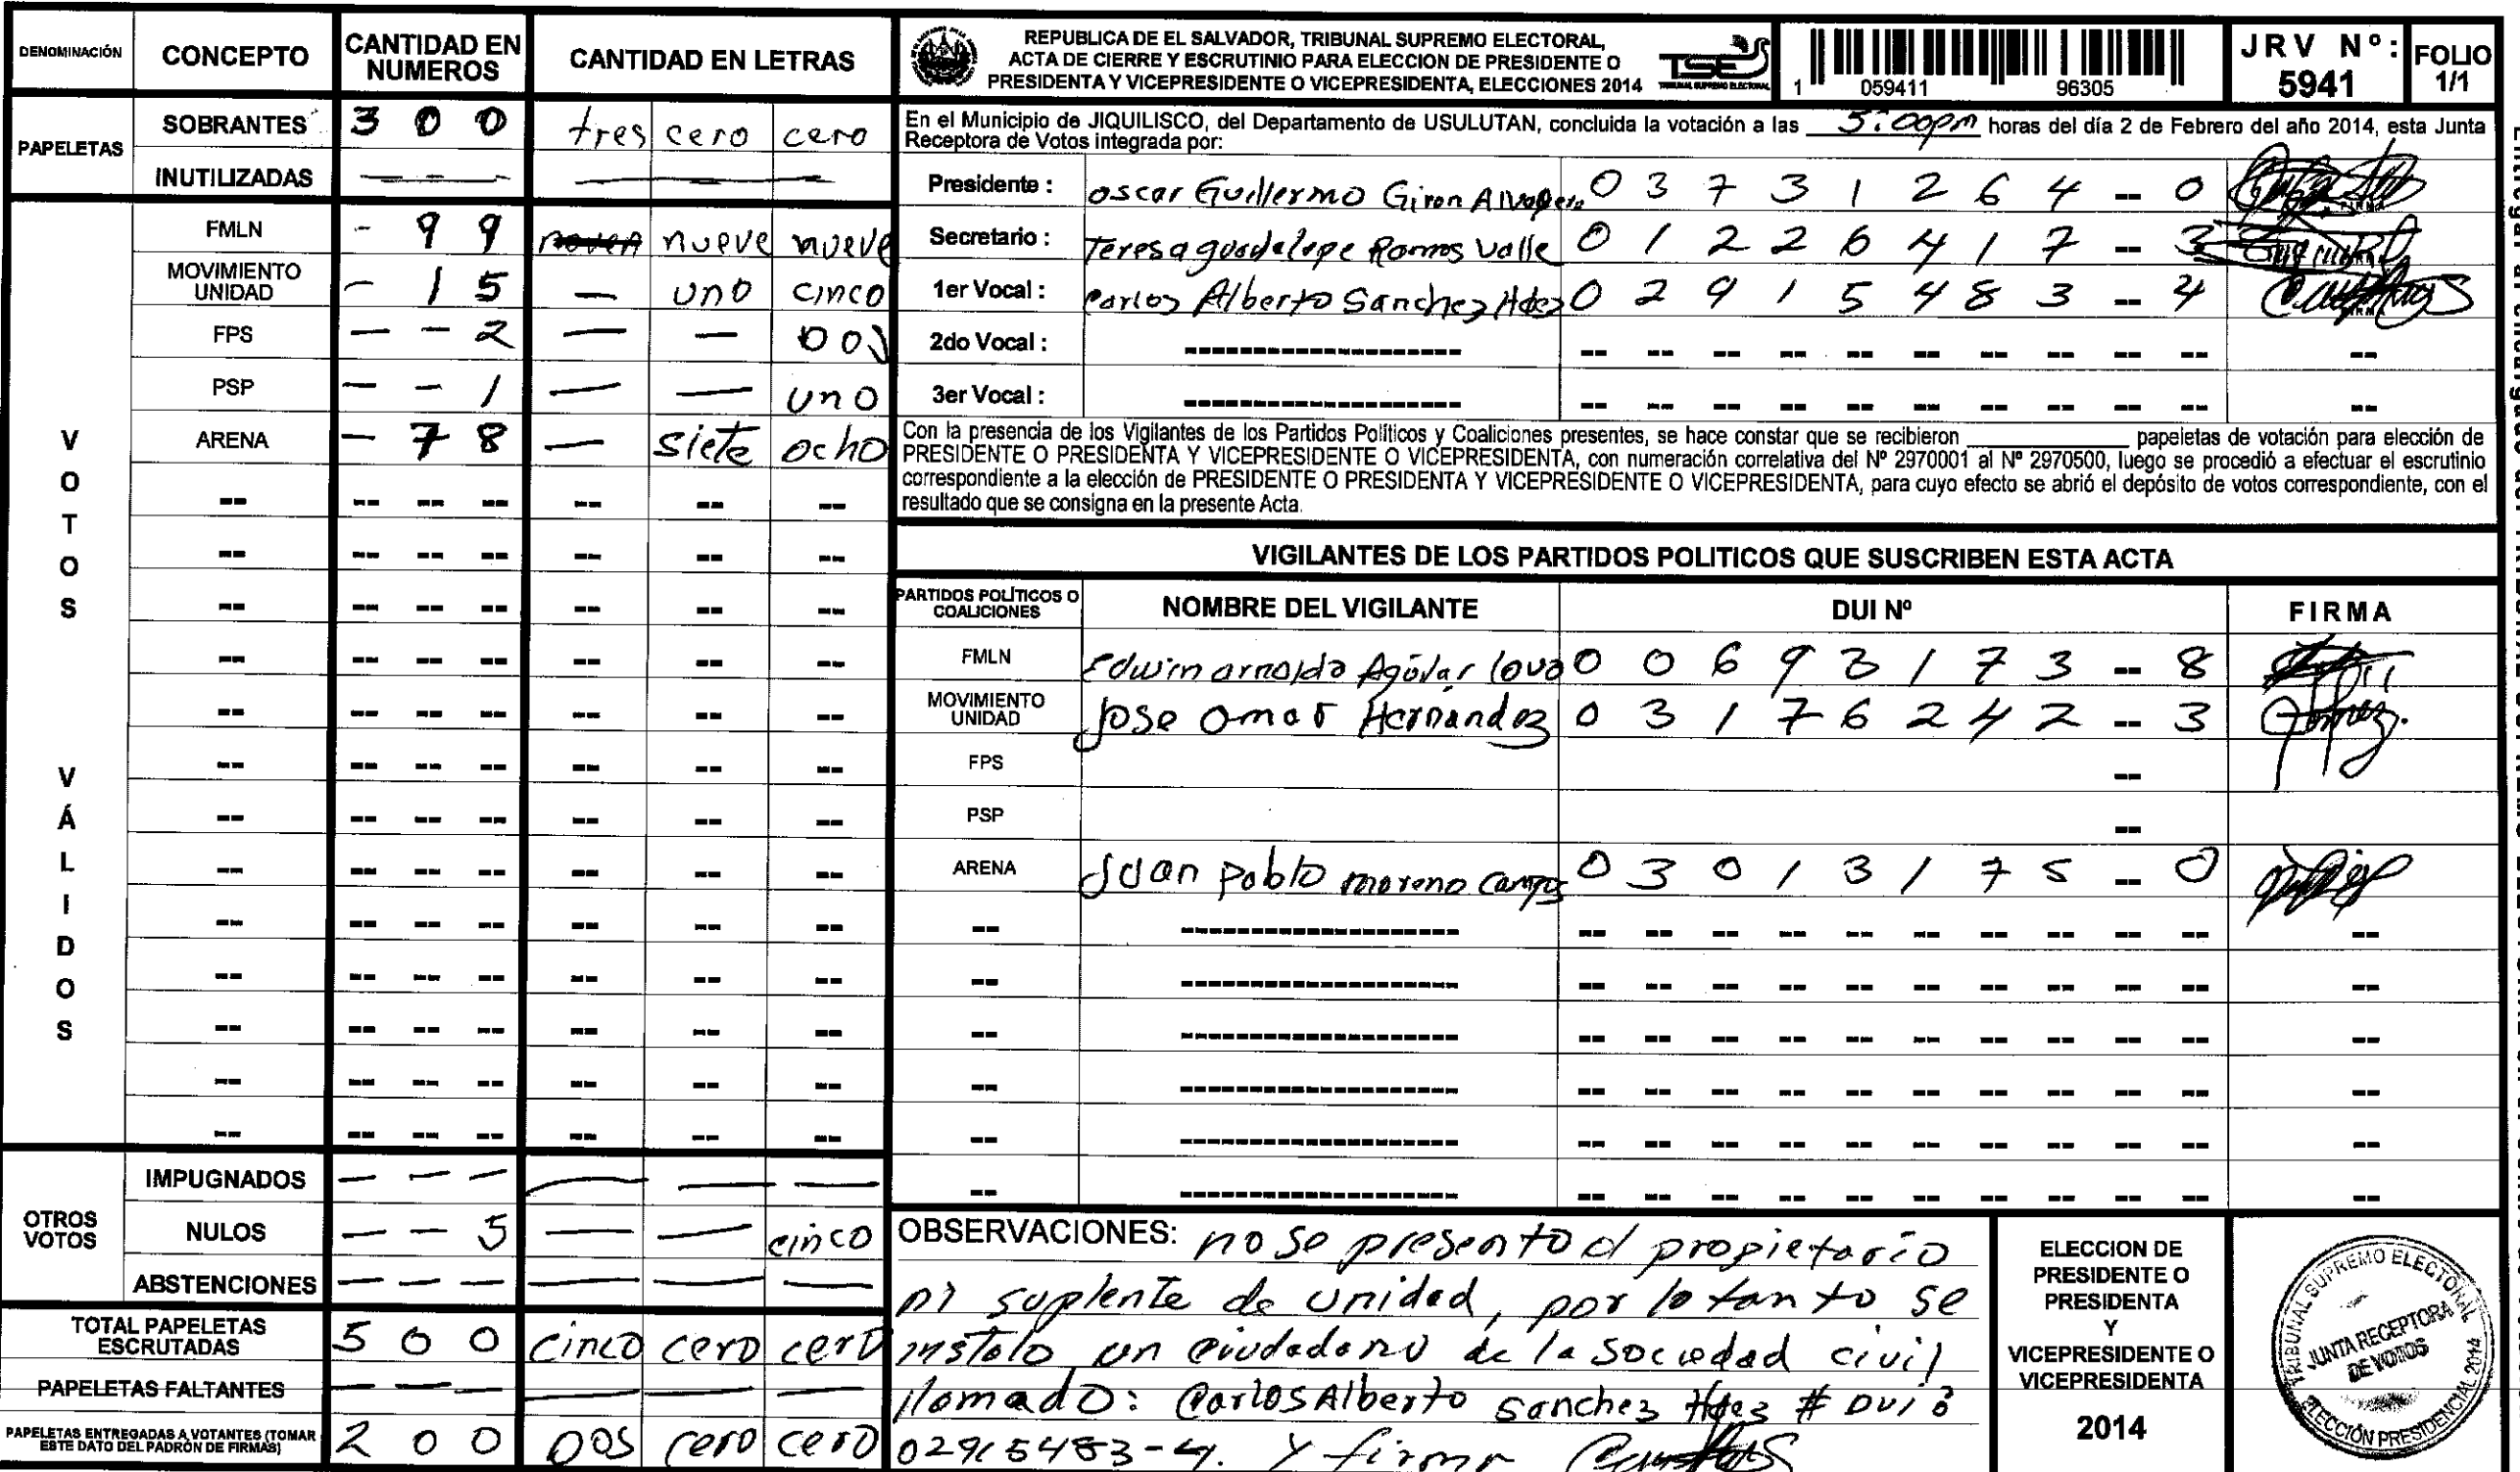 DENOMINACIÓN CONCEPTO CANTIDAD EN NUMEROS CANTIDAD EN LETRAS
PAPELETAS
SOBRANTES 3 0 0 tres cero cero
INUTILIZADAS - - - - - -
VOTOS VÁLIDOS
FMLN - 9 9 nueve nueve
MOVIMIENTO UNIDAD - 1 5 - uno cinco
FPS - - 2 - - Dos
PSP - - 1 - - uno
ARENA - 7 8 - siete ocho
OTROS VOTOS
IMPUGNADOS - - - - - -
NULOS - - 5 - - cinco
ABSTENCIONES - - - - - -
TOTAL PAPELETAS ESCRUTADAS 5 0 0 cinco cero cero
PAPELETAS FALTANTES - - - - - -
PAPELETAS ENTREGADAS A VOTANTES (TOMAR ESTE DATO DEL PADRÓN DE FIRMAS) 2 0 0 DOS cero cero
REPUBLICA DE EL SALVADOR, TRIBUNAL SUPREMO ELECTORAL,
ACTA DE CIERRE Y ESCRUTINIO PARA ELECCION DE PRESIDENTE O
PRESIDENTA Y VICEPRESIDENTE O VICEPRESIDENTA, ELECCIONES 2014
TSE
TRIBUNAL SUPREMO ELECTORAL
1 059411 96305
JRV Nº: 5941
FOLIO 1/1
En el Municipio de JIQUILISCO, del Departamento de USULUTAN, concluida la votación a las 5:00pm horas del día 2 de Febrero del año 2014, esta Junta
Receptora de Votos integrada por:
Presidente : Oscar Guillermo Giron 0 3 7 3 1 2 6 4 -- 0
Secretario : Teresa guadalupe Ramos Valle 0 1 2 2 6 4 1 7 -- 3
1er Vocal : Carlos Alberto Sanchez Hdez 0 2 9 1 5 4 8 3 -- 4
2do Vocal :
3er Vocal :
Con la presencia de los Vigilantes de los Partidos Políticos y Coaliciones presentes, se hace constar que se recibieron ____ papeletas de votación para elección de
PRESIDENTE O PRESIDENTA Y VICEPRESIDENTE O VICEPRESIDENTA, con numeración correlativa del Nº 2970001 al Nº 2970500, luego se procedió a efectuar el escrutinio
correspondiente a la elección de PRESIDENTE O PRESIDENTA Y VICEPRESIDENTE O VICEPRESIDENTA, para cuyo efecto se abrió el depósito de votos correspondiente, con el
resultado que se consigna en la presente Acta.
VIGILANTES DE LOS PARTIDOS POLITICOS QUE SUSCRIBEN ESTA ACTA
PARTIDOS POLÍTICOS O COALICIONES NOMBRE DEL VIGILANTE DUI Nº FIRMA
FMLN Edwin arnoldo Aguilar 0 0 6 9 3 1 7 3 -- 8
MOVIMIENTO UNIDAD Jose Omar Hernandez 0 3 1 7 6 2 4 2 -- 3
FPS --
PSP --
ARENA Juan pablo moreno Campos 0 3 0 1 3 1 7 5 -- 0
OBSERVACIONES: no se presento el propietario
ni suplente de unidad, por lo tanto se
instalo un ciudadano de la sociedad civil
llamado: Carlos Alberto Sanchez Hdez # DUI
02915483-4. Y firma
ELECCION DE
PRESIDENTE O
PRESIDENTA
Y
VICEPRESIDENTE O
VICEPRESIDENTA
2014
TRIBUNAL SUPREMO ELECTORAL
JUNTA RECEPTORA
DE VOTOS
ELECCIÓN PRESIDENCIAL 2014